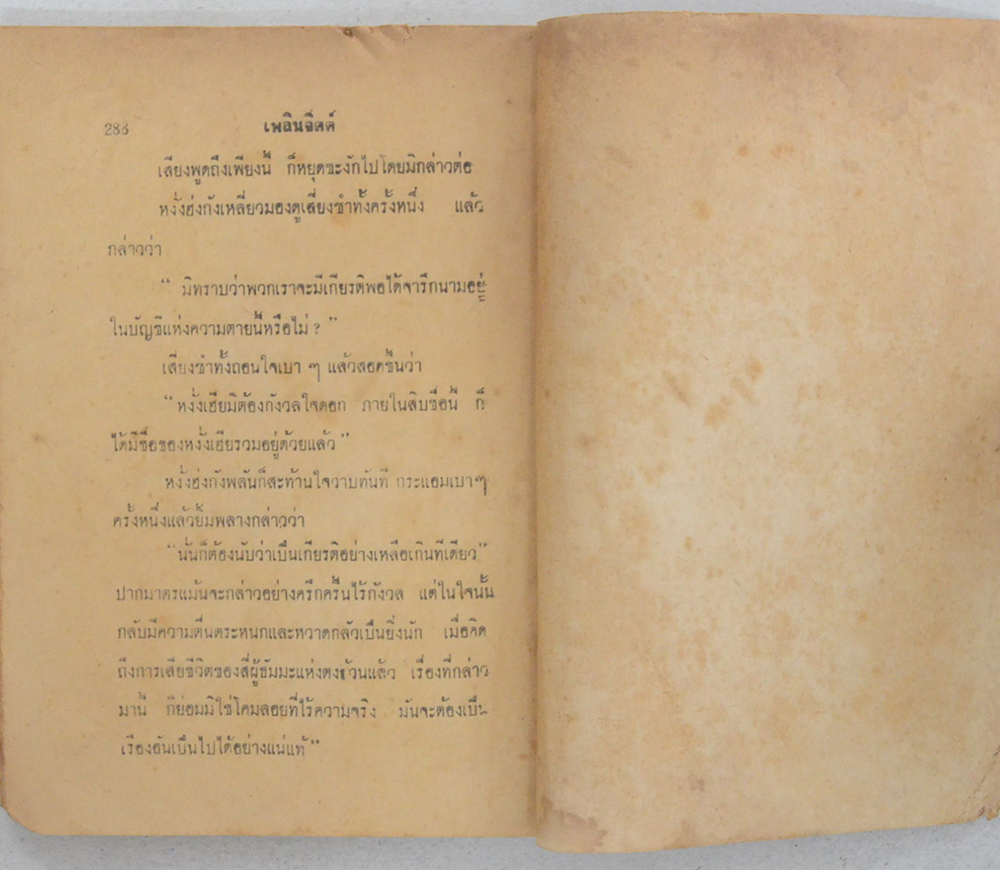 288 เพลินจิตต์
เสียงพูดถึงเพียงนี้ ก็หยุดชะงักไปโดยมิกล่าวต่อ
หงั่งฮ่งกังเหลี่ยวมองดูเสี่ยงซำทั้งครั้งหนึ่ง แล้ว
กล่าวว่า
“ มิทราบว่าพวกเราจะมีเกียรติพอได้จารึกนามอยู่
ในบัญชีแห่งความตายนี้หรือไม่ ? ”
เสี่ยงซำทั้งถอนใจเบา ๆ แล้วสอดขึ้นว่า
“หงั่งเฮียมิต้องกังวลใจดอก ภายในสิบชื่อนี้ ก็
ได้มีชื่อของหงั่งเฮียรวมอยู่ด้วยแล้ว”
หงั่งฮ่งกังพลันก็สะท้านใจวาบทันที กระแอมเบา ๆ
ครั้งหนึ่งแล้วยิ้มพลางกล่าวว่า
“นั่นก็ต้องนับว่าเป็นเกียรติอย่างเหลือเกินทีเดียว”
ปากมาตรแม้นจะกล่าวอย่างครึกครื้นไร้กังวล แต่ในใจนั้น
กลับมีความตื่นตระหนกและหวาดกลัวเป็นยิ่งนัก เมื่อคิด
ถึงการเสียชีวิตของสี่ผู้ธัมมะแห่งตงง้วนแล้ว เรื่องที่กล่าว
มานี้ ก็ย่อมมิใช่โคมลอยที่ไร้ความจริง มันจะต้องเป็น
เรื่องอันเป็นไปได้อย่างแน่แท้”